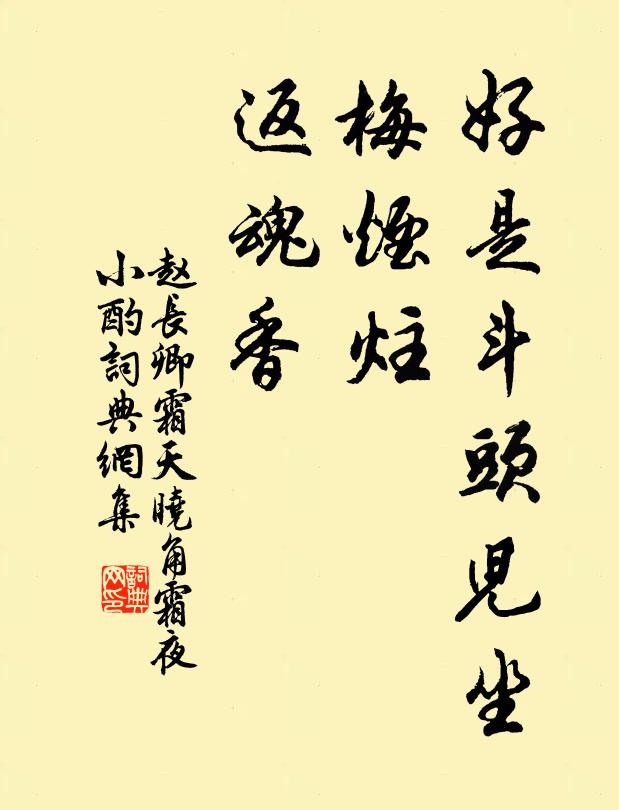 好是斗頭兒坐
梅煙炷
返魂香
赵長卿霜天曉角霜夜
小酌詞典網集
詞典
网印